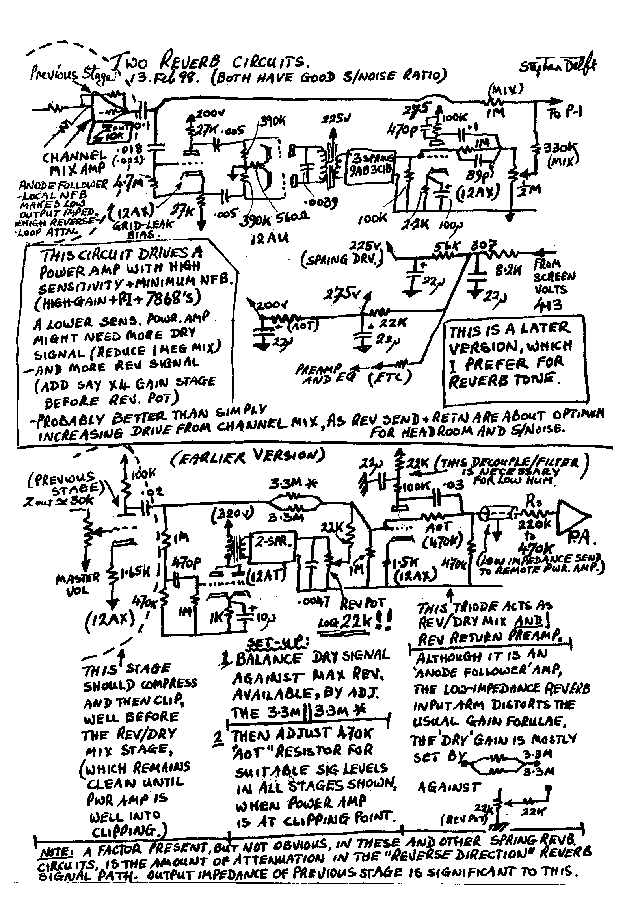 TWO REVERB CIRCUITS.
13. Feb 98. (BOTH HAVE GOOD S/NOISE RATIO)
Previous Stage
(MIX)
1M
To P-1
330K
(MIX)
200V
27K
.005
390K
225V
275
100K
470p
.1
1M
39p
(12AX)
½M
CHANNEL
MIX AMP
.018
(.002)
Zout ≈
10K
0.1
ANODE FOLLOWER
-LOCAL NFB
MAKES LOW
OUTPUT IMPED.
WHICH REVERSE-
LOOP ATTN.
4.7M
(12AX)
27K
GRID-LEAK
BIAS.
.005
390K
560Ω
12AU
.0039
3 SPRING
9AB3C1B
100K
2.2K
100µ
THIS CIRCUIT DRIVES A
POWER AMP WITH HIGH
SENSITIVITY + MINIMUM NFB.
(HIGH-GAIN + PI + 7868's)
A LOWER SENS. POWR. AMP
MIGHT NEED MORE DRY
SIGNAL (REDUCE 1 MEG MIX)
-AND MORE REV SIGNAL
(ADD SAY X4 GAIN STAGE
BEFORE REV. POT)
-PROBABLY BETTER THAN SIMPLY
INCREASING DRIVE FROM CHANNEL MIX, AS REV SEND + RETN ARE ABOUT OPTIMUM
FOR HEADROOM AND S/NOISE.
225V
(SPRING DRV.)
56K
307
8.2K
22µ
22µ
FROM
SCREEN
VOLTS
443
200V
(AOT)
22µ
275V
22K
22µ
PREAMP
AND EQ
(ETC)
THIS IS A LATER
VERSION, WHICH
I PREFER FOR
REVERB TONE.
(EARLIER VERSION)
(PREVIOUS
STAGE)
Zout ≈ 30K
100K
.02
3.3M *
3.3M
22µ
22K
(THIS DECOUPLE/FILTER)
IS NECESSARY
FOR LOW HUM.
100K
.03
Rs
220K
to
470K
P.A.
MASTER
VOL
1.65K
(12AX)
1M
470p
470K
1M
(320V)
2-SPR.
(12AT)
1K
10µ
.0047
22K
1M
REV POT
LOG 22K!!
1.5K
(12AX)
AOT
(470K)
470K
(LOW IMPEDANCE SEND
TO REMOTE PWR. AMP.)
THIS STAGE
SHOULD COMPRESS
AND THEN CLIP,
WELL BEFORE
THE REV/DRY
MIX STAGE,
(WHICH REMAINS
CLEAN UNTIL
PWR AMP IS
WELL INTO
CLIPPING.)
SET-UP:
1 BALANCE DRY SIGNAL
AGAINST MAX REV.
AVAILABLE, BY ADJ.
THE 3.3M || 3.3M *
2 THEN ADJUST 470K
"AOT" RESISTOR FOR
SUITABLE SIG LEVELS
IN ALL STAGES SHOWN,
WHEN POWER AMP
IS AT CLIPPING POINT.
THIS TRIODE ACTS AS
REV/DRY MIX AND!
REV RETURN PREAMP.
ALTHOUGH IT IS AN
'ANODE FOLLOWER' AMP,
THE LOW-IMPEDANCE REVERB
INPUT ARM DISTORTS THE
USUAL GAIN FORULAE.
THE 'DRY' GAIN IS MOSTLY
SET BY
3.3M
3.3M
AGAINST
22K
(REV POT)
22K
NOTE: A FACTOR PRESENT, BUT NOT OBVIOUS, IN THESE AND OTHER SPRING REVB
CIRCUITS, IS THE AMOUNT OF ATTENUATION IN THE "REVERSE DIRECTION" REVERB
SIGNAL PATH. OUTPUT IMPEDANCE OF PREVIOUS STAGE IS SIGNIFICANT TO THIS.